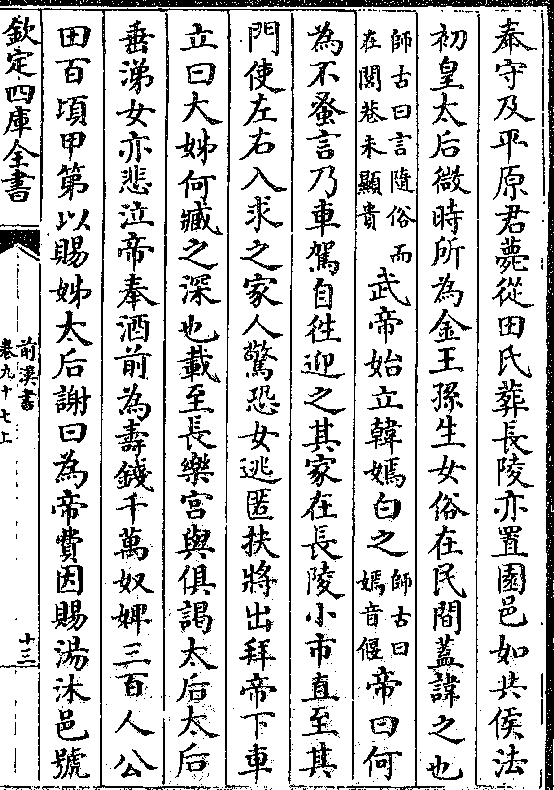 奉守及平原君薨從田氏葬長陵亦置園邑如共侯法
初皇太后微時所為金王孫生女俗在民間蓋諱之也
師古曰言隨俗而在閭巷未顯貴武帝始立韓嫣白之師古曰嫣音偃帝曰何
為不蚤言乃車駕自往迎之其家在長陵小市直至其
門使左右入求之家人驚恐女逃匿扶將出拜帝下車
立曰大姊何藏之深也載至長樂宮與俱謁太后太后
垂涕女亦悲泣帝奉酒前為壽錢千萬奴婢三百人公
田百頃甲第以賜姊太后謝曰為帝費因賜湯沐邑號
欽定四庫全書
前漢書
卷九十七上
十三